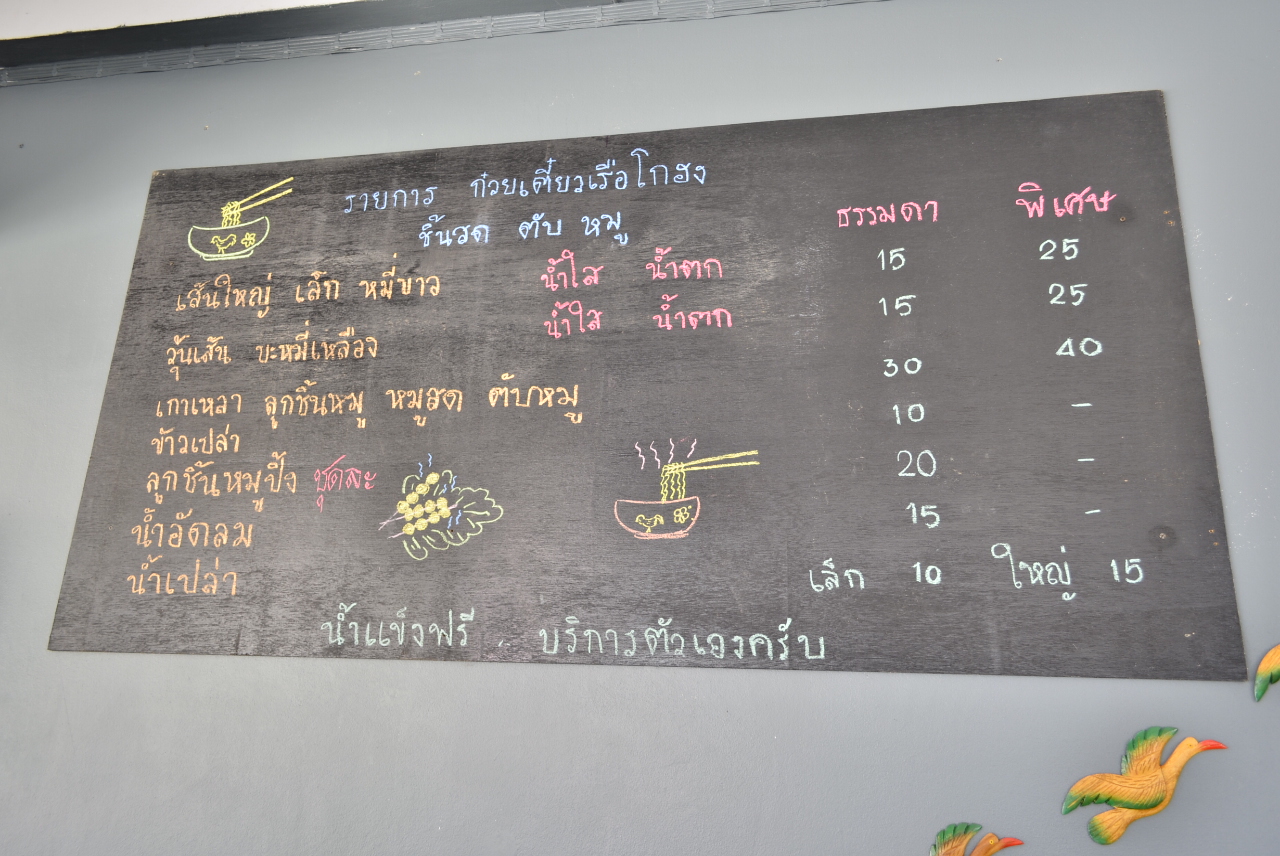 รายการ ก๋วยเตี๋ยวเรือโกฮง
ชิ้นสด ตับ หมู
ธรรมดา พิเศษ
เส้นใหญ่ เล็ก หมี่ขาว น้ำใส น้ำตก 15 25
วุ้นเส้น บะหมี่เหลือง น้ำใส น้ำตก 15 25
เกาเหลา ลูกชิ้นหมู หมูสด ตับหมู 30 40
ข้าวเปล่า 10 -
ลูกชิ้นหมูปิ้ง ชุดละ 20 -
น้ำอัดลม 15 -
น้ำเปล่า เล็ก 10 ใหญ่ 15
น้ำแข็งฟรี . บริการตัวเองครับ